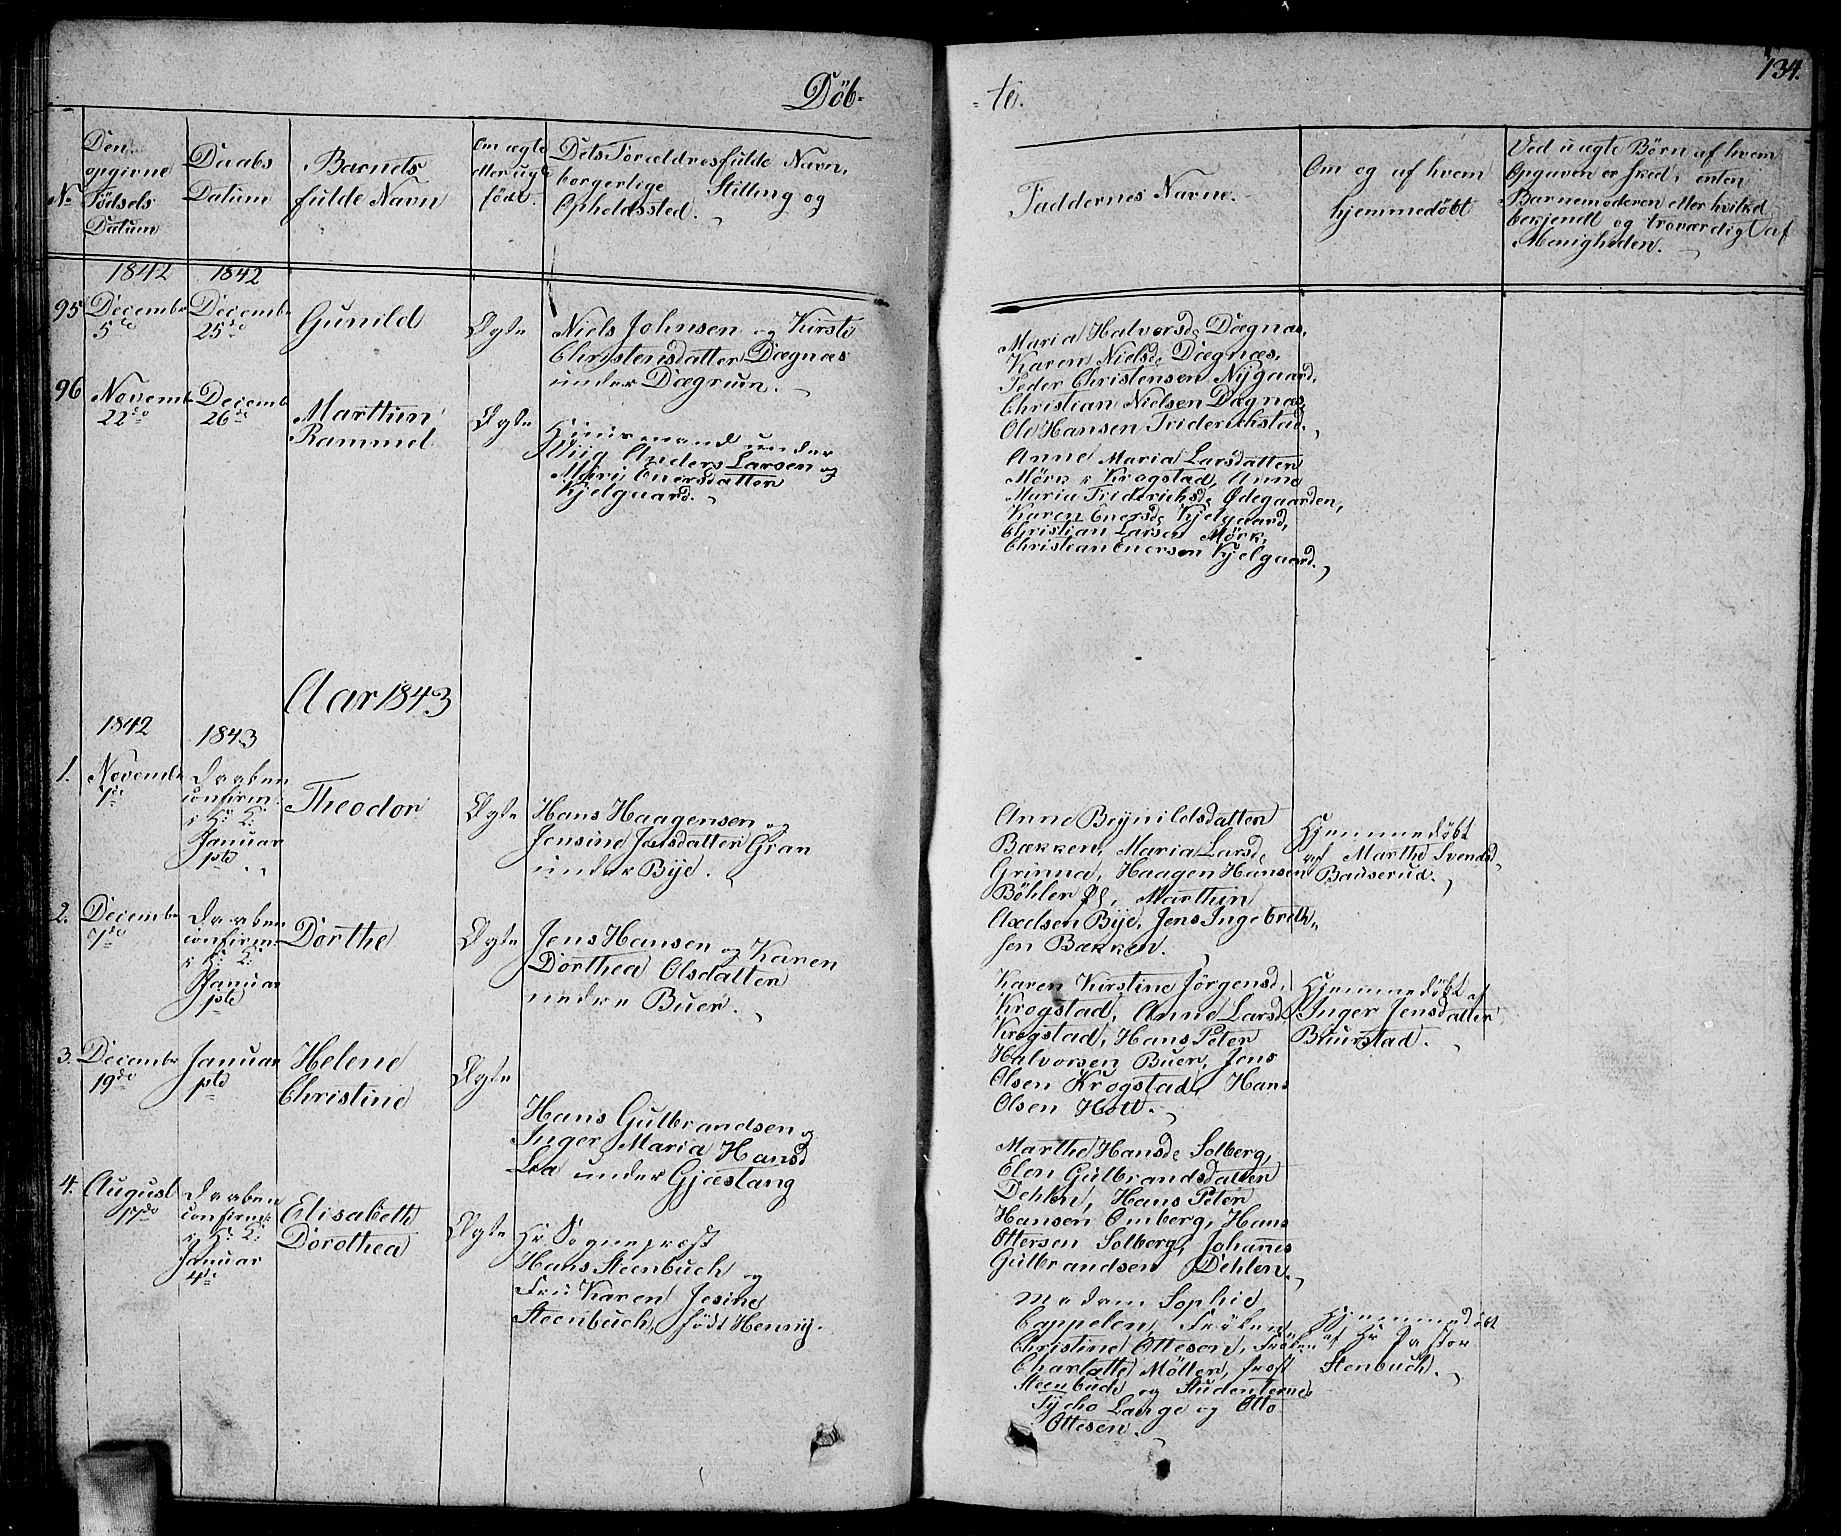 Döb-
-te.
134.
No
Den opgivne Fødsels Datum
Daabs Datum
Barnets fulde Navn
Om ægte eller uægte födt.
Dets Forældres fulde Navn, borgerlige Stilling og Opholdssted.
Faddernes Navne.
Om og af hvem hjemmedöbt
Ved uægte Börn af hvem Opgaven er sked, enten Barnemoderen eller hvilked bekjendt og troværdigt af Menigheden.
1842
1842
95
Decembr
5te
Decembr
25de
Gunild
Ægte
Niels Johnsen og Kirsti
Christensdatter Dægnæs
under Dægrum.
Maria Halvorsd. Dægnæs,
Karen Nielsd. Dægnæs,
Peder Christensen Nÿgaard,
Christian Nielsen Dægnæs,
Ole Hansen Friderichstad.
96
Novemb
22de
Decemb
26de
Marthin
Rammel
Ægte
Huusmand under
Viig Anders Larsen og
Mari Enersdatter
Kjelgaard.
Anne Maria Larsdatter
Mörk i Krogstad, Anne
Maria Friderichsd. Ödegaarden,
Karen Enersd. Kjelgaard,
Christian Larsen Mörk,
Christian Enersen Kjelgaard.
Aar 1843
1842
1843
1.
Novemb
7de
Daaben
confirm.
i K: K:
Januar
1ste
Theodor
Ægte
Hans Haagensen og
Jensine Jensdatter Gran
under Bÿe.
Anne Brÿnildsdatter
Bækken, Maria Larsd.
Grinna, Haagen Hansen
Böhler Pl, Marthin
Axelsen Bÿe, Jens Ingebreth-
sen Bækken.
Hjemmedöbt
af Marthe Svendsd.
Badserud.
2.
Decembr
7de
Daaben
confirm.
i K: K:
Januar
1ste
Dorthe
Ægte
Jens Hansen og Karen
Dorthea Olsdatter
nedre Buer.
Karen Kirstine Jörgensd.
Krogstad, Anne Larsd.
Krogstad, Hans Peter
Halvorsen Buer, Jens
Olsen Krogstad, Hans
Olsen Holt.
Hjemmedöbt af
Inger Jensdatter
Buerstad.
3.
Decembr
19de
Januar
1ste
Helene
Christine
Ægte
Hans Gulbrandsen og
Inger Maria Hansd
Lia under Gjæstang
Marthe Hansd. Solberg,
Elen Gulbrandsdatter
Dehlen, Hans Peter
Hansen Omberg, Hans
Ottersen Solberg, Johannes
Gulbrandsen Dehlen.
4.
August
17de
Daaben
confirm.
i K: K:
Januar
4de
Elisabeth
Dorothea
Ægte
Hr Sogneprest
Hans Steenbuch og
Fru Karen Jesine
Steenbuch, födt Henrig.
Madam Sophie
Cappelen, Fröken
Christine Ottesen, Fröken
Charlotte Möller, Prost
Steenbuch og Studenterne
Tÿcho Lange og Otto
Ottesen.
Hjemmedöbt
af Hr Pastor
Stenbuch.